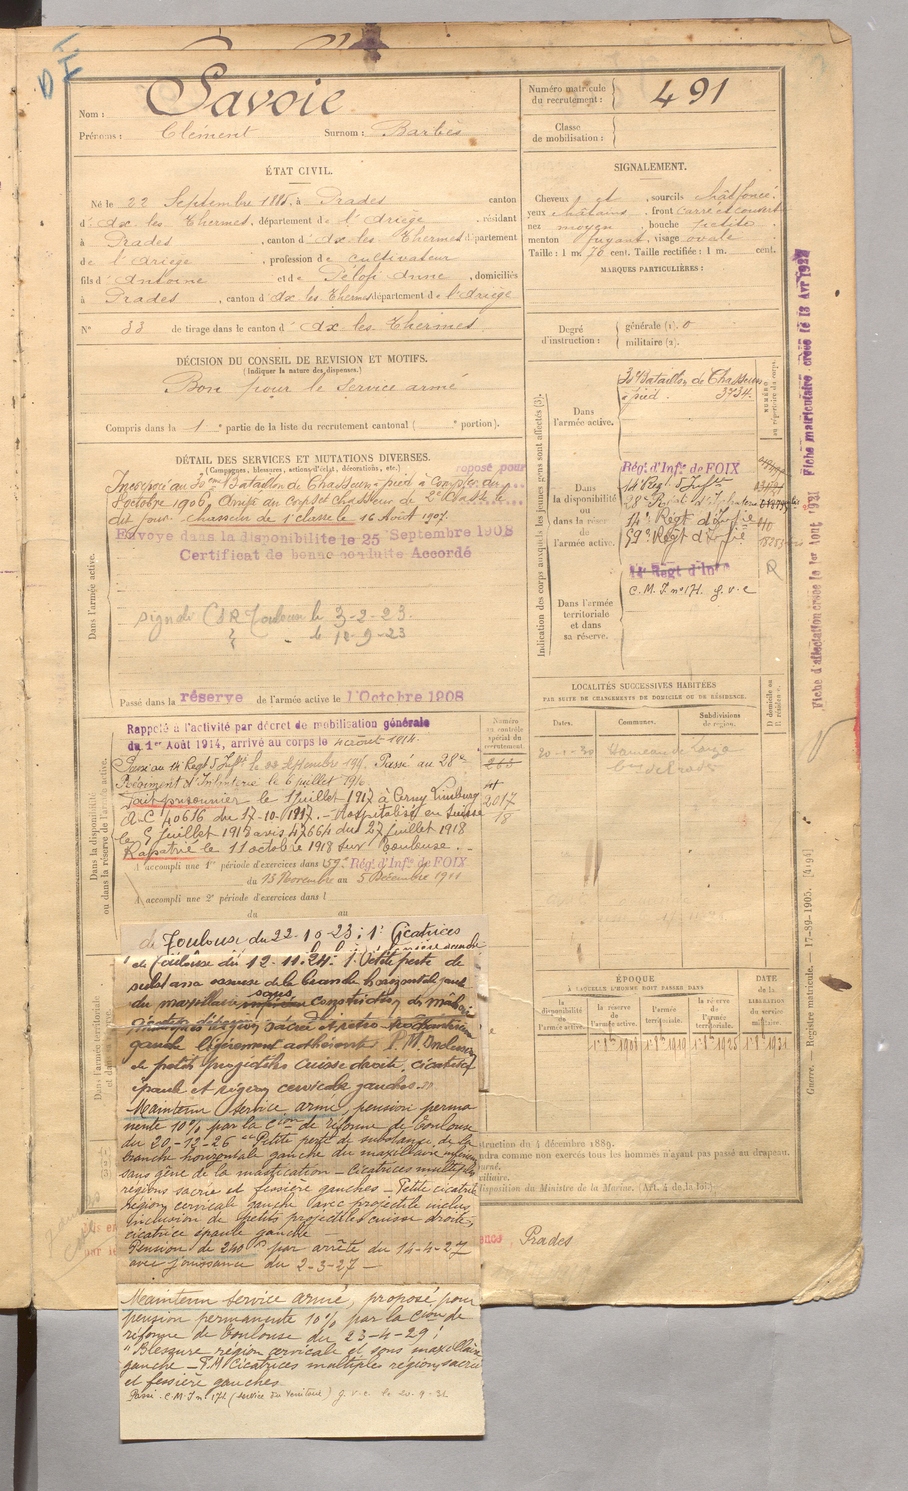 Nom : Savoie
Prénoms : Clément Surnom : Barbès
Numéro matricule du recrutement : 491
Classe de mobilisation :
ÉTAT CIVIL.
Né le 22 Septembre 1885, à Prades canton
d'Ax les Thermes, département de l'Ariège, résidant
à Prades, canton d'Ax les Thermes département
de l'Ariège, profession de cultivateur
fils d'Antoine et de Anne, domiciliés
à Prades, canton d'Ax les Thermes département de l'Ariège
N° 33 de tirage dans le canton d'Ax les Thermes
SIGNALEMENT.
Cheveux et, sourcils chât foncé
yeux châtains, front carré et couvert
nez moyen, bouche petite
menton fuyant, visage ovale
Taille : 1 m. 70 cent. Taille rectifiée : 1 m. cent.
MARQUES PARTICULIÈRES :
Degré d'instruction : générale (1). 0
militaire (2).
DÉCISION DU CONSEIL DE REVISION ET MOTIFS.
(Indiquer la nature des dispenses.)
Bon pour le service armé
Compris dans la 1e partie de la liste du recrutement cantonal ( e portion).
DÉTAIL DES SERVICES ET MUTATIONS DIVERSES.
(Campagnes, blessures, actions d'éclat, décorations, etc.)
Incorporé au 30eme Bataillon de Chasseurs à pied à compter du
8 octobre 1906, Arrivé au corps et chasseur de 2e classe le
dit jour. chasseur de 1e classe le 16 Août 1907.
Envoyé dans la disponibilité le 25 Septembre 1908
Certificat de bonne conduite Accordé
Dans l'armée active.
signalé CSR Toulouse le 3-2-23.
le 10-9-23
Passé dans la réserve de l'armée active le 1 Octobre 1908
Indication des corps auxquels les jeunes gens sont affectés (3).
Dans l'armée active.
30e Bataillon de Chasseurs
à pied. 3734.
Dans la disponibilité ou dans la réserve de l'armée active.
Régt. d'Infie de FOIX
14e Rég. d'Infie
28e Régt d'Infanterie
14e Régt d'Infie
59e Régt d'Infie
14e Régt d'Infie
C. M. I. n° 171. g.v.c
Dans l'armée territoriale et dans sa réserve.
Fiche d'affectation créée le 1er Août 1931 Fiche matriculaire créée le 13 Avr 1927
Dans la disponibilité ou dans la réserve de l'armée active.
Rappelé à l'activité par décret de mobilisation générale
du 1er Août 1914, arrivé au corps le 4 août 1914.
Passé au 14e Régt d'Infie le Passé au 28e
Régiment d'Infanterie le 6 juillet 1916
Fait prisonnier le 1 juillet 1917 à Cerny Limburg
A-C 40616 du 17-10-1917. - Hospitalisé en Suisse
le 5 juillet 1918 avis 47664 du 27 juillet 1918
Rapatrié le 11 octobre 1918 sur Toulouse. -
A accompli une 1re période d'exercices dans l 59e Régt. d'Infie de FOIX
du 13 Novembre au 5 Décembre 1911
A accompli une 2e période d'exercices dans l
du au
Numéro au contrôle spécial du recrutement.
2017
18
LOCALITÉS SUCCESSIVES HABITÉES
PAR SUITE DE CHANGEMENTS DE DOMICILE OU DE RÉSIDENCE.
Dates. Communes. Subdivisions de région. D domicile ou R résidence.
20-1-30
ÉPOQUE
À LAQUELLE L'HOMME DOIT PASSER DANS
la disponibilité de l'armée active. la réserve de l'armée active. l'armée territoriale. la réserve de l'armée territoriale.
DATE de la LIBÉRATION du service militaire.
1er 8bre 1908 1er 8bre 1919 1er 8bre 1925 1er 8bre 1931
de Toulouse du 22-10-23 : 1° Cicatrices
de Toulouse du 12-11-24 : 1° Petite perte de
substance osseuse de la branche horizontale gauche
du maxillaire sans constriction des mâchoires
région sacrée et rétro trochantérienne
gauche légèrement adhérente P.M. Inclusion
de petits projectiles cuisse droite, cicatrices
épaule et région cervicale gauches.
Maintenu service armé, pension perma
nente 10% par la cion de réforme de Toulouse
du 20-12-26 "Petite perte de substance de la
branche horizontale gauche du maxillaire inférieur
sans gêne de la mastication - Cicatrices multiples
régions sacrée et fessière gauches - Petite cicatrice
région cervicale gauche avec projectile inclus
Inclusion de petits projectiles cuisse droite,
cicatrice épaule gauche -
Pension de 240 par arrêté du 14-4-27
avec jouissance du 2-3-27 -
Maintenu service armé, proposé pour
pension permanente 10% par la Cion de
réforme de Toulouse du 23-4-29 :
"Blessure région cervicale et sous maxillaire
gauche - P.M. Cicatrices multiples région sacrée
et fessière gauches.
Passé C.M.I n° 171 (service du territoire) g.v.c le 20.9.31
struction du 4 décembre 1889.
ndra comme non exercés tous les hommes n'ayant pas passé au drapeau.
disposition du Ministre de la Marine. (Art. 4 de la loi.)
Prades
Guerre. — Registre matricule. — 17-89-1905. [4194]